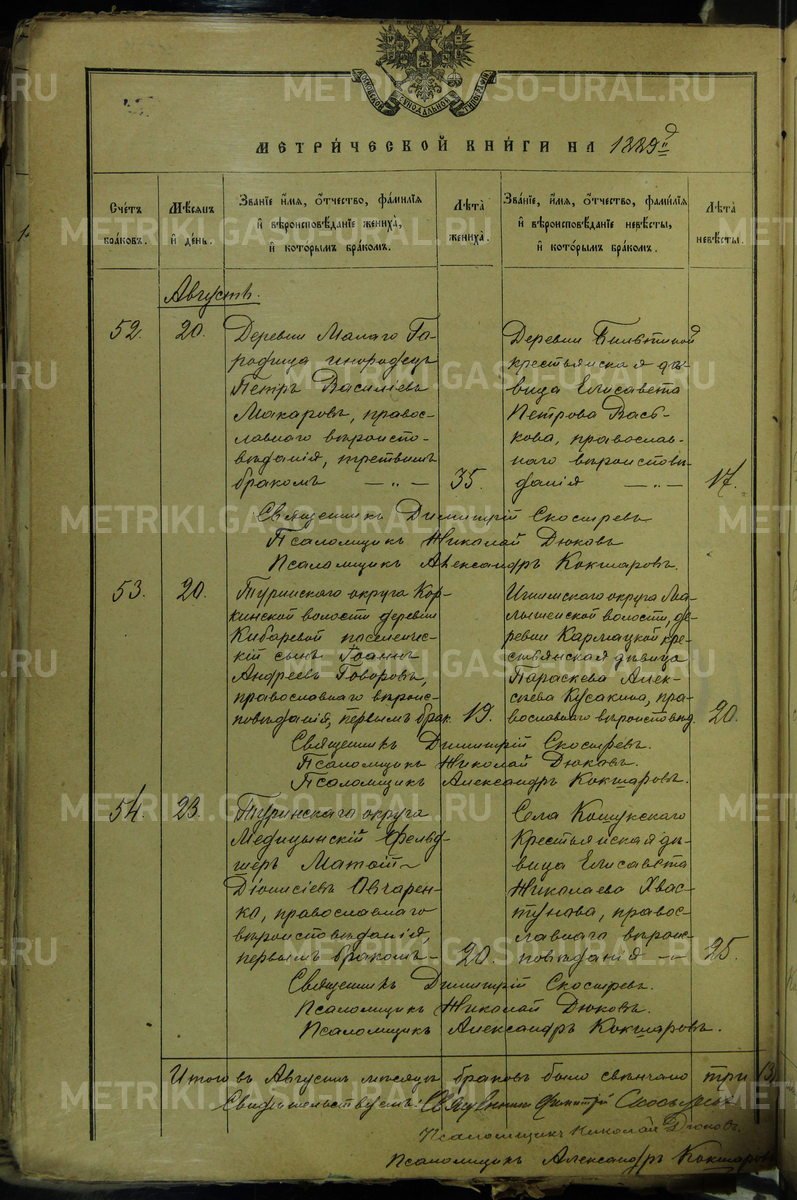 МОСКОВСКОЙ СИНОДАЛЬНОЙ ТИПОГРАФІИ
МЕТРИ́ЧЕСКОЙ КНИ́ГИ НА 1889 й
Сче́тъ бра́ковъ.
Мѣ́сяцъ и де́нь.
Зва́ніе и́мя, ѻ́тчество, фами́лія и҆ вѣроисповѣ́даніе жениха̀, и҆ кото́рымъ бра́комъ.
Лѣ́та жениха̀.
Зва́ніе, и́мя, ѻ́тчество, фами́лія и҆ вѣроисповѣ́даніе невѣ́сты, и҆ кото́рымъ бра́комъ.
Лѣ́та невѣ́сты.
Августъ.
52.
20.
Деревни Малаго Го-
родища инородецъ
Петръ Василіевъ
Макаровъ, правос-
лавнаго вѣроиспо-
вѣданія, третьимъ
бракомъ — „ —
35.
Деревни
крестьянская дѣ-
вица Елисавета
Петрова Вась-
кова, православ-
наго вѣроисповѣ-
данія — „ —
17.
Священникъ Димитрій Скосыревъ
Псаломщикъ Николай Дюковъ
Псаломщикъ Александръ Кокшаровъ.
53.
20.
Туринскаго округа Кор-
кинской волости деревни
Кибаревой поселенче-
скій сынъ Іоаннъ
Андреевъ Говоровъ,
православнаго вѣроис-
повѣданія, первымъ брак.
19.
Ишимскаго округа
волости, де-
ревни Кармацкой кре-
стьянская дѣвица
Параскева Алек-
сѣева Кусакина, пра-
вославнаго вѣроисповѣд.
20.
Священникъ Димитрій Скосыревъ.
Псаломщикъ Николай Дюковъ.
Псаломщикъ Александръ Кокшаровъ.
54.
23.
Туринскаго округа
Медицынскій фельд-
шеръ Матѳій
Діонисіевъ Овчарен-
ко, православнаго
вѣроисповѣданія,
первымъ бракомъ —
20.
Села Кошукскаго
Крестьянская дѣ-
вица Елисавета
Николаева Хвас-
тунова, правос-
лавнаго вѣроис-
повѣданія — „ —
25.
Священникъ Димитрій Скосыревъ.
Псаломщикъ Николай Дюковъ.
Псаломщикъ Александръ Кокшаровъ.
Итого въ Августѣ мѣсяцѣ браковъ было свѣнчано три
Свидѣтельствуемъ: Священникъ Димитрій Скосыревъ
Псаломщикъ Николай Дюковъ.
Псаломщикъ Александръ Кокшаровъ
METRIKI.GASO-URAL.RU
METRIKI.GASO-URAL.RU
METRIKI.GASO-URAL.RU
METRIKI.GASO-URAL.RU
METRIKI.GASO-URAL.RU
METRIKI.GASO-URAL.RU
METRIKI.GASO-URAL.RU
METRIKI.GASO-URAL.RU